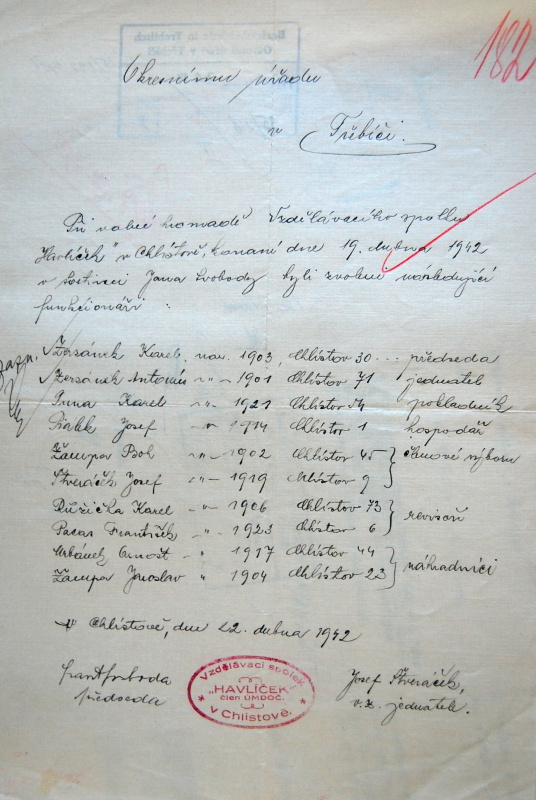 182
Okresnímu úřadu
v Třebíči.
Při valné hromadě Vzdělávacího spolku
Havlíček" v Chlístově, konané dne 19. dubna 1942
v hostinci Jana Svobody byli zvoleni následující
funkcionáři :
Karel, nar. 1903, Chlístov 30 ... předseda
Antonín -„- 1901 Chlístov 71 jednatel
Karel -„- 1921 Chlístov 54 pokladník
Josef -„- 1914 Chlístov 1 hospodář
Žampa Boh. -„- 1902 Chlístov 45 členové výboru
Štveráček Josef -„- 1919 Chlístov 9
Růžička Karel -„- 1906 Chlístov 73 revisoři
Pacas František -„- 1923 Chlístov 6
Urbánek Arnošt -„- 1917 Chlístov 44 náhradníci
Žampa Jaroslav „ 1904 Chlístov 23
V Chlístově, dne 22. dubna 1942
Frant. Svoboda
předseda
Vzdělávací spolek
„HAVLÍČEK"
člen ÚMDOČ.
v Chlístově.
Josef Štveráček,
v. z. jednatel.